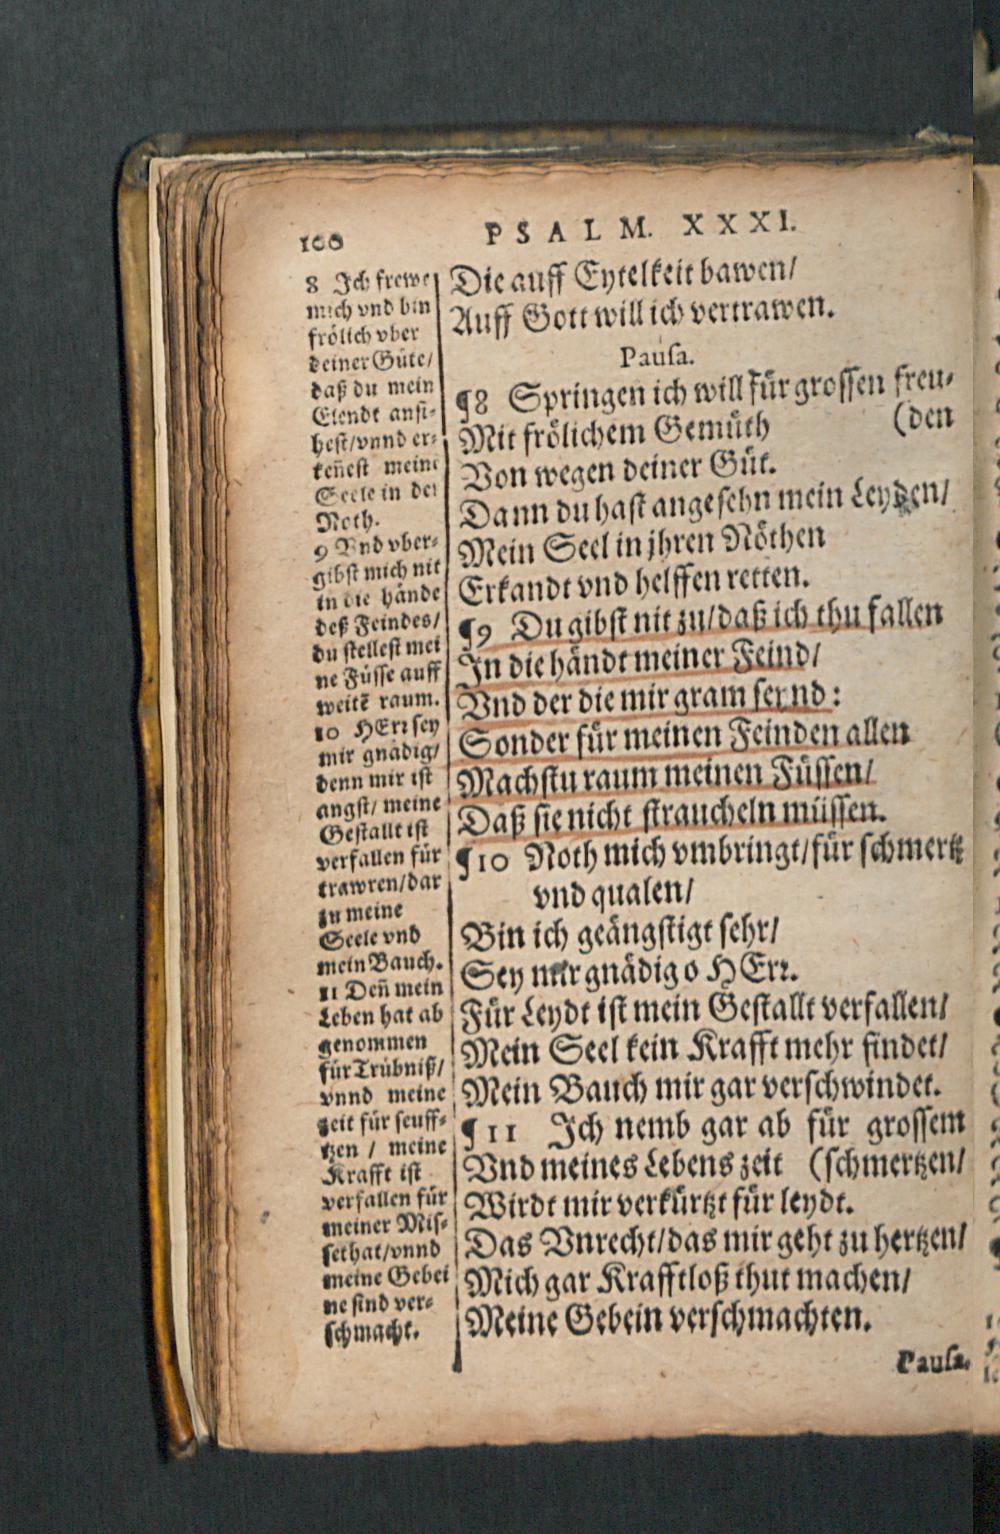 100
PSALM. XXXI.
8 Ich frewe
mich vnd bin
frölich vber
deiner Güte/
daß du mein
Elendt ansi-
hest/vnnd er-
keñest meine
Seele in der
Noth.
9 Vnd vber-
gibst mich nit
in die hände
deß Feindes/
du stellest mei
ne Füsse auff
weitẽ raum.
10 HErr sey
mir gnädig/
denn mir ist
angst/ meine
Gestallt ist
verfallen für
trawren/dar
zu meine
Seele vnd
mein Bauch.
11 Deñ mein
Leben hat ab
genommen
für Trübniß/
vnnd meine
zeit für seuff-
tzen / meine
Krafft ist
verfallen für
meiner Mis-
sethat/vnnd
meine Gebei
ne sind ver-
schmacht.
Die auff Eytelkeit bawen/
Auff Gott will ich vertrawen.
Pausa.
¶8 Springen ich will für grossen freu-
Mit frölichem Gemüth (den
Von wegen deiner Güt.
Dann du hast angesehn mein Leyden/
Mein Seel in jhren Nöthen
Erkandt vnd helffen retten.
¶9 Du gibst nit zu/daß ich thu fallen
In die händt meiner Feind/
Vnd der die mir gram seynd:
Sonder für meinen Feinden allen
Machstu raum meinen Füssen/
Daß sie nicht straucheln müssen.
¶10 Noth mich vmbringt/für schmertz
vnd qualen/
Bin ich geängstigt sehr/
Sey mir gnädig o HErr.
Für Leydt ist mein Gestallt verfallen/
Mein Seel kein Krafft mehr findet/
Mein Bauch mir gar verschwindet.
¶11 Ich nemb gar ab für grossem
Vnd meines Lebens zeit (schmertzen/
Wirdt mir verkürtzt für leydt.
Das Vnrecht/das mir geht zu hertzen/
Mich gar Krafftloß thut machen/
Meine Gebein verschmachten.
Pausa.